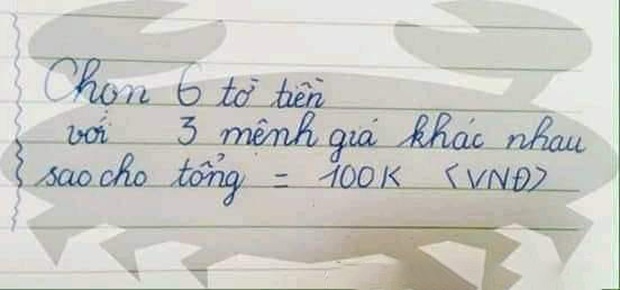 Chọn 6 tờ tiền
với 3 mệnh giá khác nhau
sao cho tổng = 100K <VNĐ>